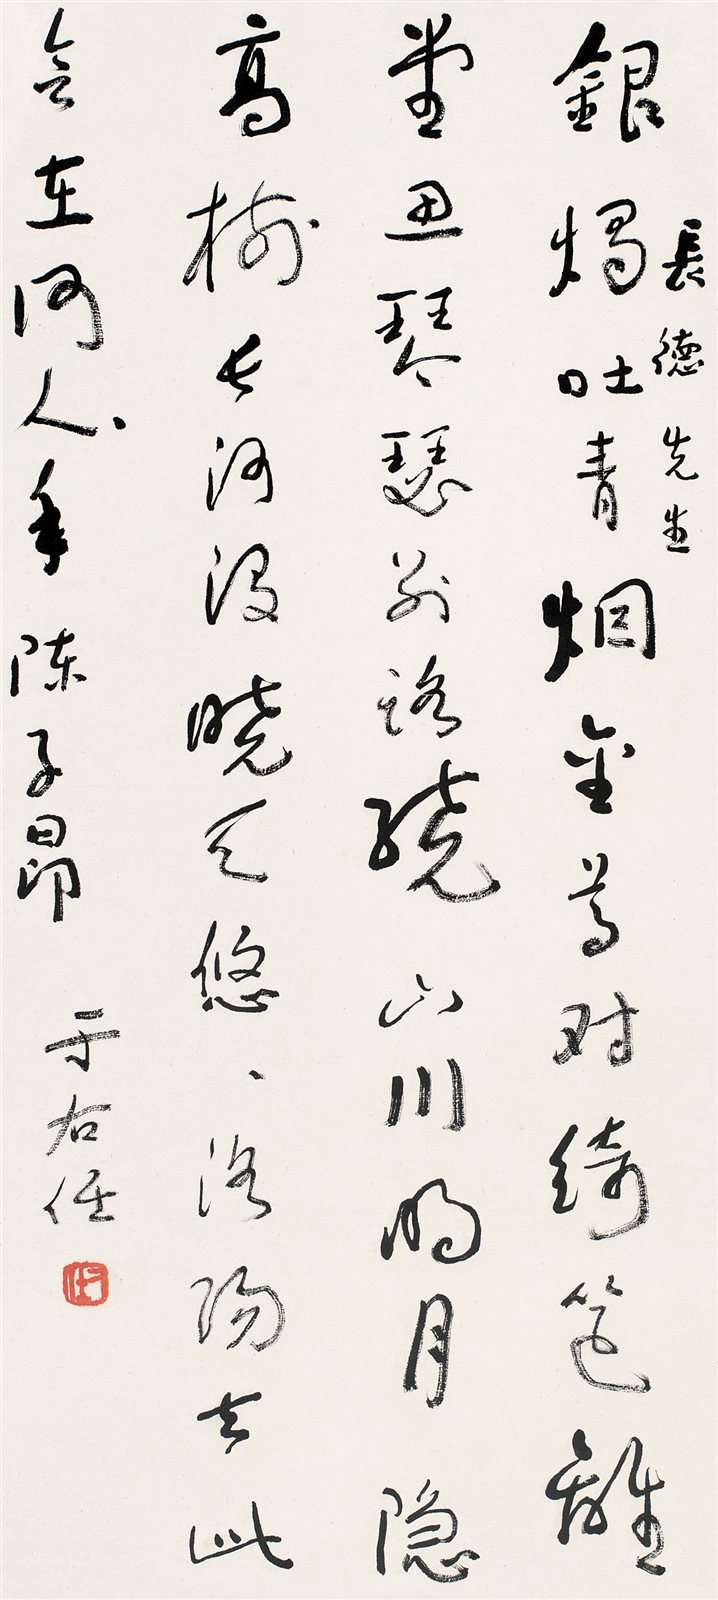 長德先生
銀燭吐青烟金尊对綺筵離
堂思琴瑟別路繞山川明月隐
高樹長河没曉天悠、洛陽去此
會在何人年 陳子昂
于右任